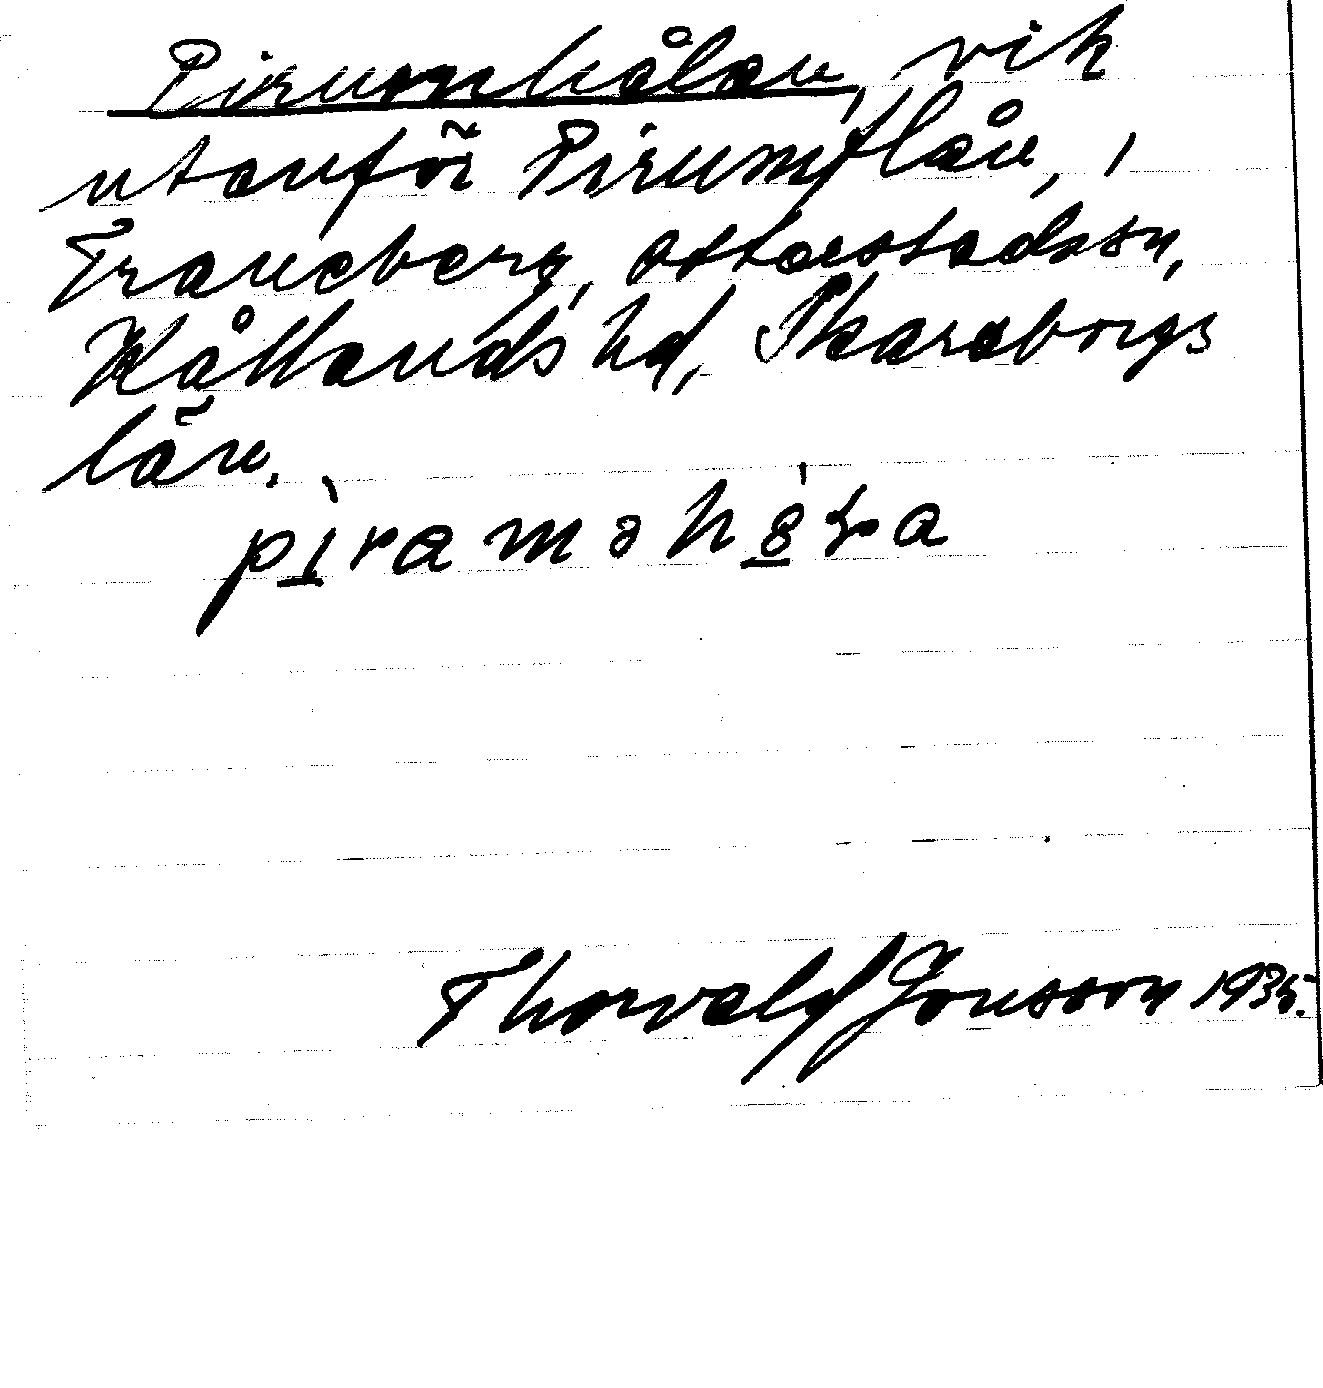 Pirumhålan, vik
utanför Pirumflån, i
Traneberg, Otterstadssn,
Kållands hd, Skaraborgs
län.
Thorvald Jonsson 1935.